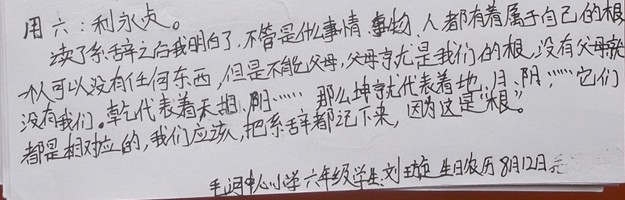 用六:利永贞。
读了系辞之后我明白了,不管是什么事情、事物、人都有着属于自己的根
人可以没有任何东西,但是不能父母,父母就是我们的根,没有父母就
没有我们。乾代表着天 阳…… 那么坤就代表着地,月、阴,……它们
都是相对应的,我们应该把系辞都记下来,因为这是“根”。
毛 中心小学六年级学生:刘 生日农历8月12日